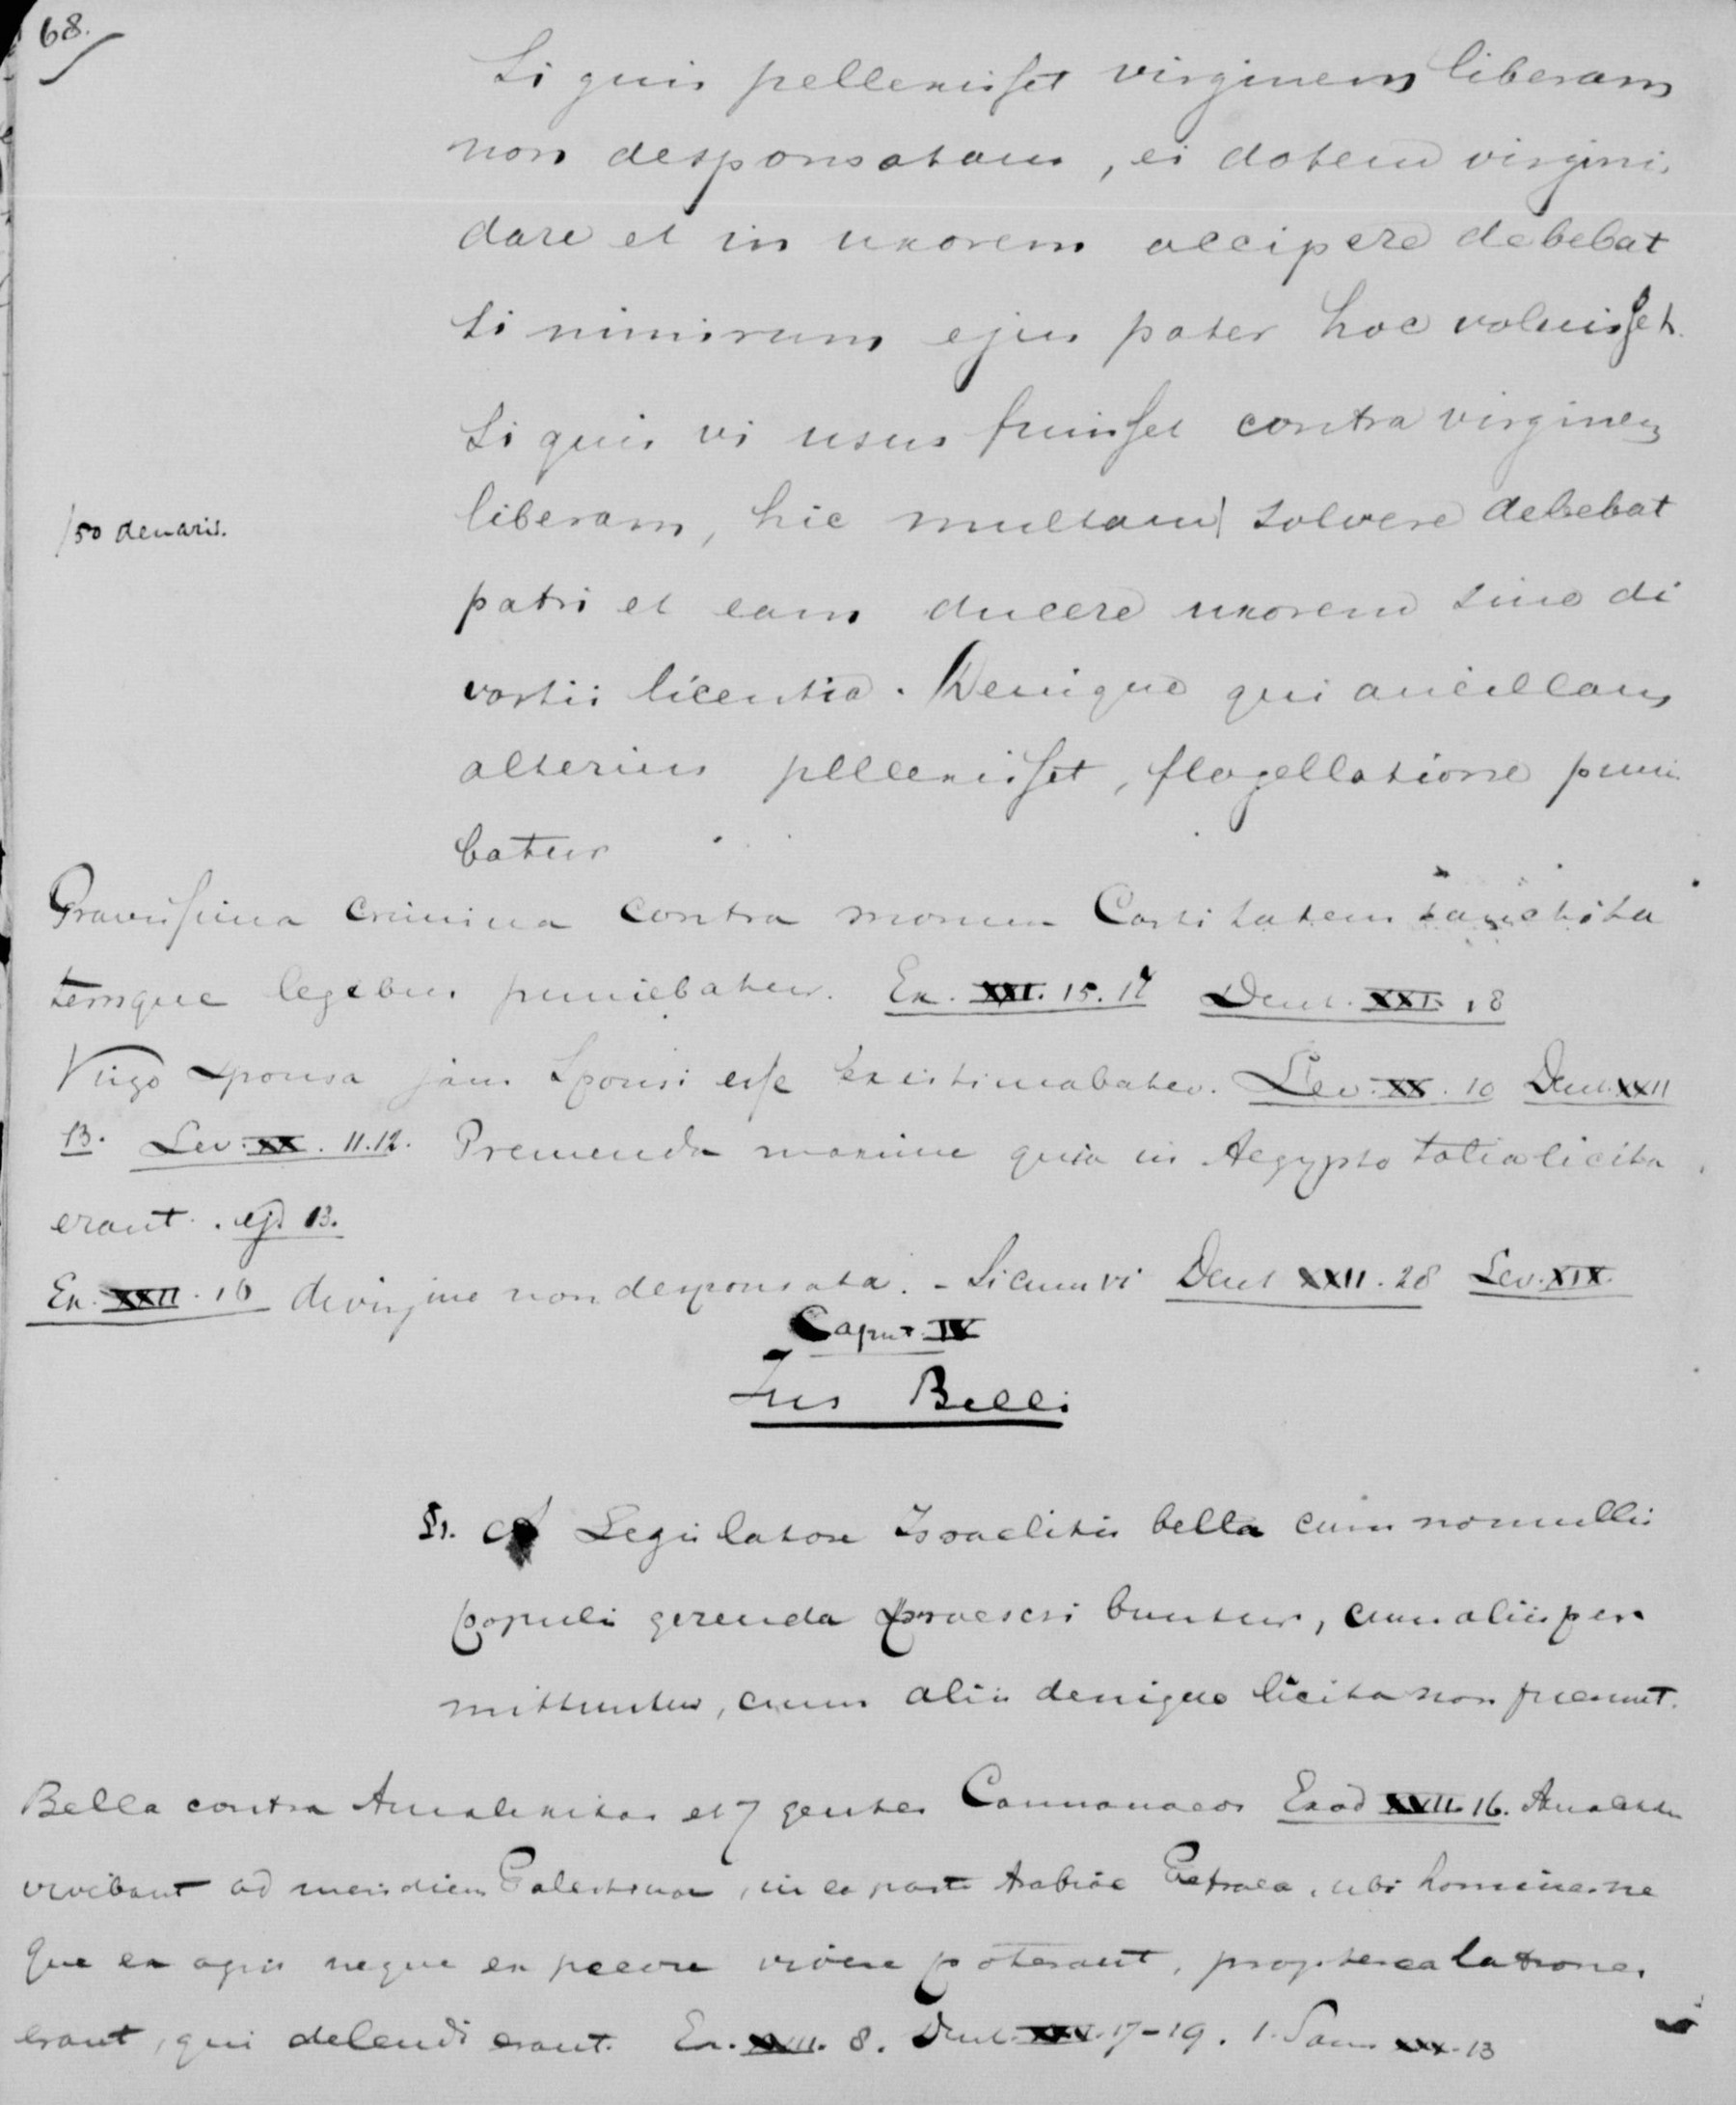 68.
Si quis pellexisset virginem liberam
non desponsatam, ei dotem virgini
dare et in uxorem accipere debebat
si nimirum ejus pater hoc voluisset.
Si quis vi usus fuisset contra virginem
liberam, hic multam| solvere debebat
/50 denariis.
patri et eam ducere uxorem sine di
vortii licentia. Denique qui ancillam
alterius pellexisset, flagellatione puni
batur
Gravissima crimina contra morum Castitatem sanctita
temque legibus puniebatur. Ex. XXI. 15. 17 Deut. XXI. 18
Virgo sponsa jam Sponsi esse existimabatur. Lev. XX. 10 Deut. XXII
13. Lev. XX. 11.12. Premenda maxime quia in Aegypto talia licita
erant. 13.
Ex. XXII. 16 de virgine non desponsata. - Si cum vi Deut XXII. 28 Lev. XIX.
Caput. IV
Jus Belli
§1. Legislatore Israelitis bella cum nonnullis
populis gerenda praescribuntur, cum aliis per
mittuntur, cum aliis denique licita non fuerunt.
Bella contra Amalekitas et 7 gentes Cannanaeos Exod XVII. 16.
vivebant ad meridiem Palestinae, in ea parte Arabiae Petraea, ubi homines ne
que ex agris neque ex pecore vivere poterant, propterea latrones
erant, qui delendi erant. Ex. XVII. 8. Deut. XXV. 17-19. 1. Sam XV. 13